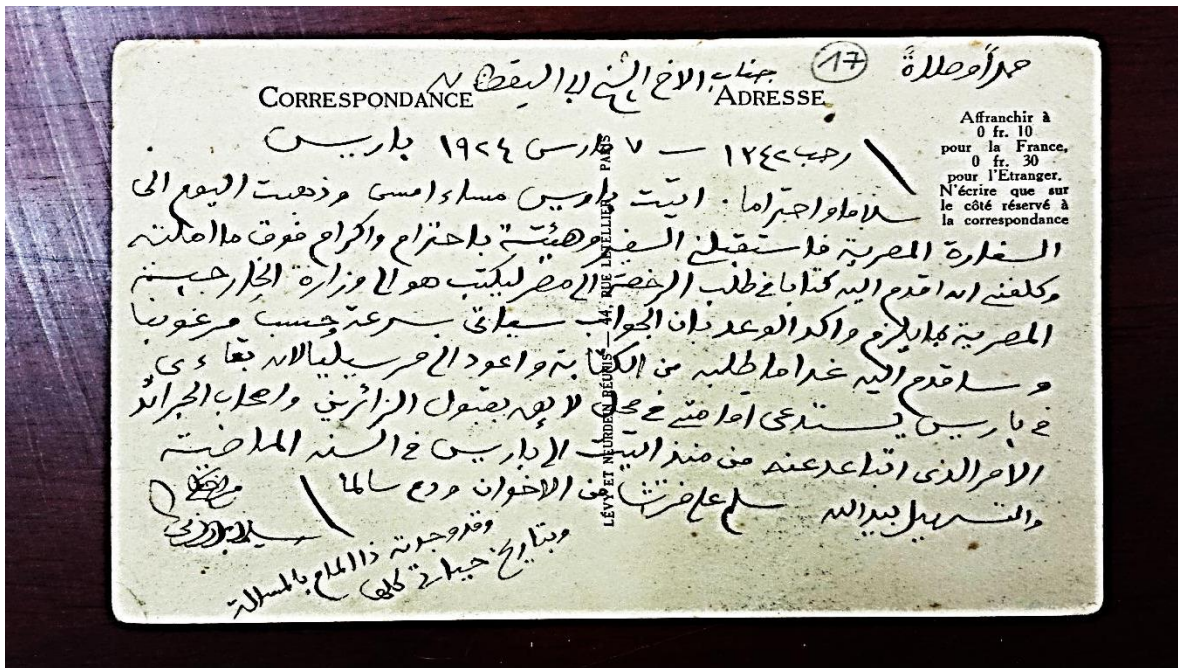 حمداً وصلاةً
17
جناب الاخ الشيخ ابي اليقظان
CORRESPONDANCE
ADRESSE
Affranchir à
0 fr. 10
pour la France,
0 fr. 30
pour l'Etranger.
N'écrire que sur
le côté réservé à
la correspondance
رجب ١٣٤٢ — ٧ مارس ١٩٢٤ باريس
سلاما واحتراما. اتيت باريس مساء امسى وذهبت اليوم الى
السفارة المصرية فاستقبلني السفير وهيئته باحترام واكرام فوق ما امكنه
وكلفني ان اقدم اليه كتابا في طلب الرخصة الى مصر ليكتب هو الى وزارة الخارجية
المصرية بما يلزم واكد الوعد بان الجواب سياتي بسرعة وحسب مرغوبنا
وساقدم اليه غدا ما طلبه من الكتابة واعود الى مرسيليا لان بقاءى
في باريس يستدعى اقامتي في محل لايق بقبول الزائرين واصحاب الجرائد
الامر الذى اتباعد عنه من منذ اتيت الى باريس في السنة الماضية
والتسهيل بيد الله سلم على من الاخوان ودم سالما
من اخيك
وقد وجدته ذا المام بالمسالة
وبتاريخ حياتي كلها
LÉVY ET NEURDEIN RÉUNIS — 44, RUE LETELLIER, PARIS